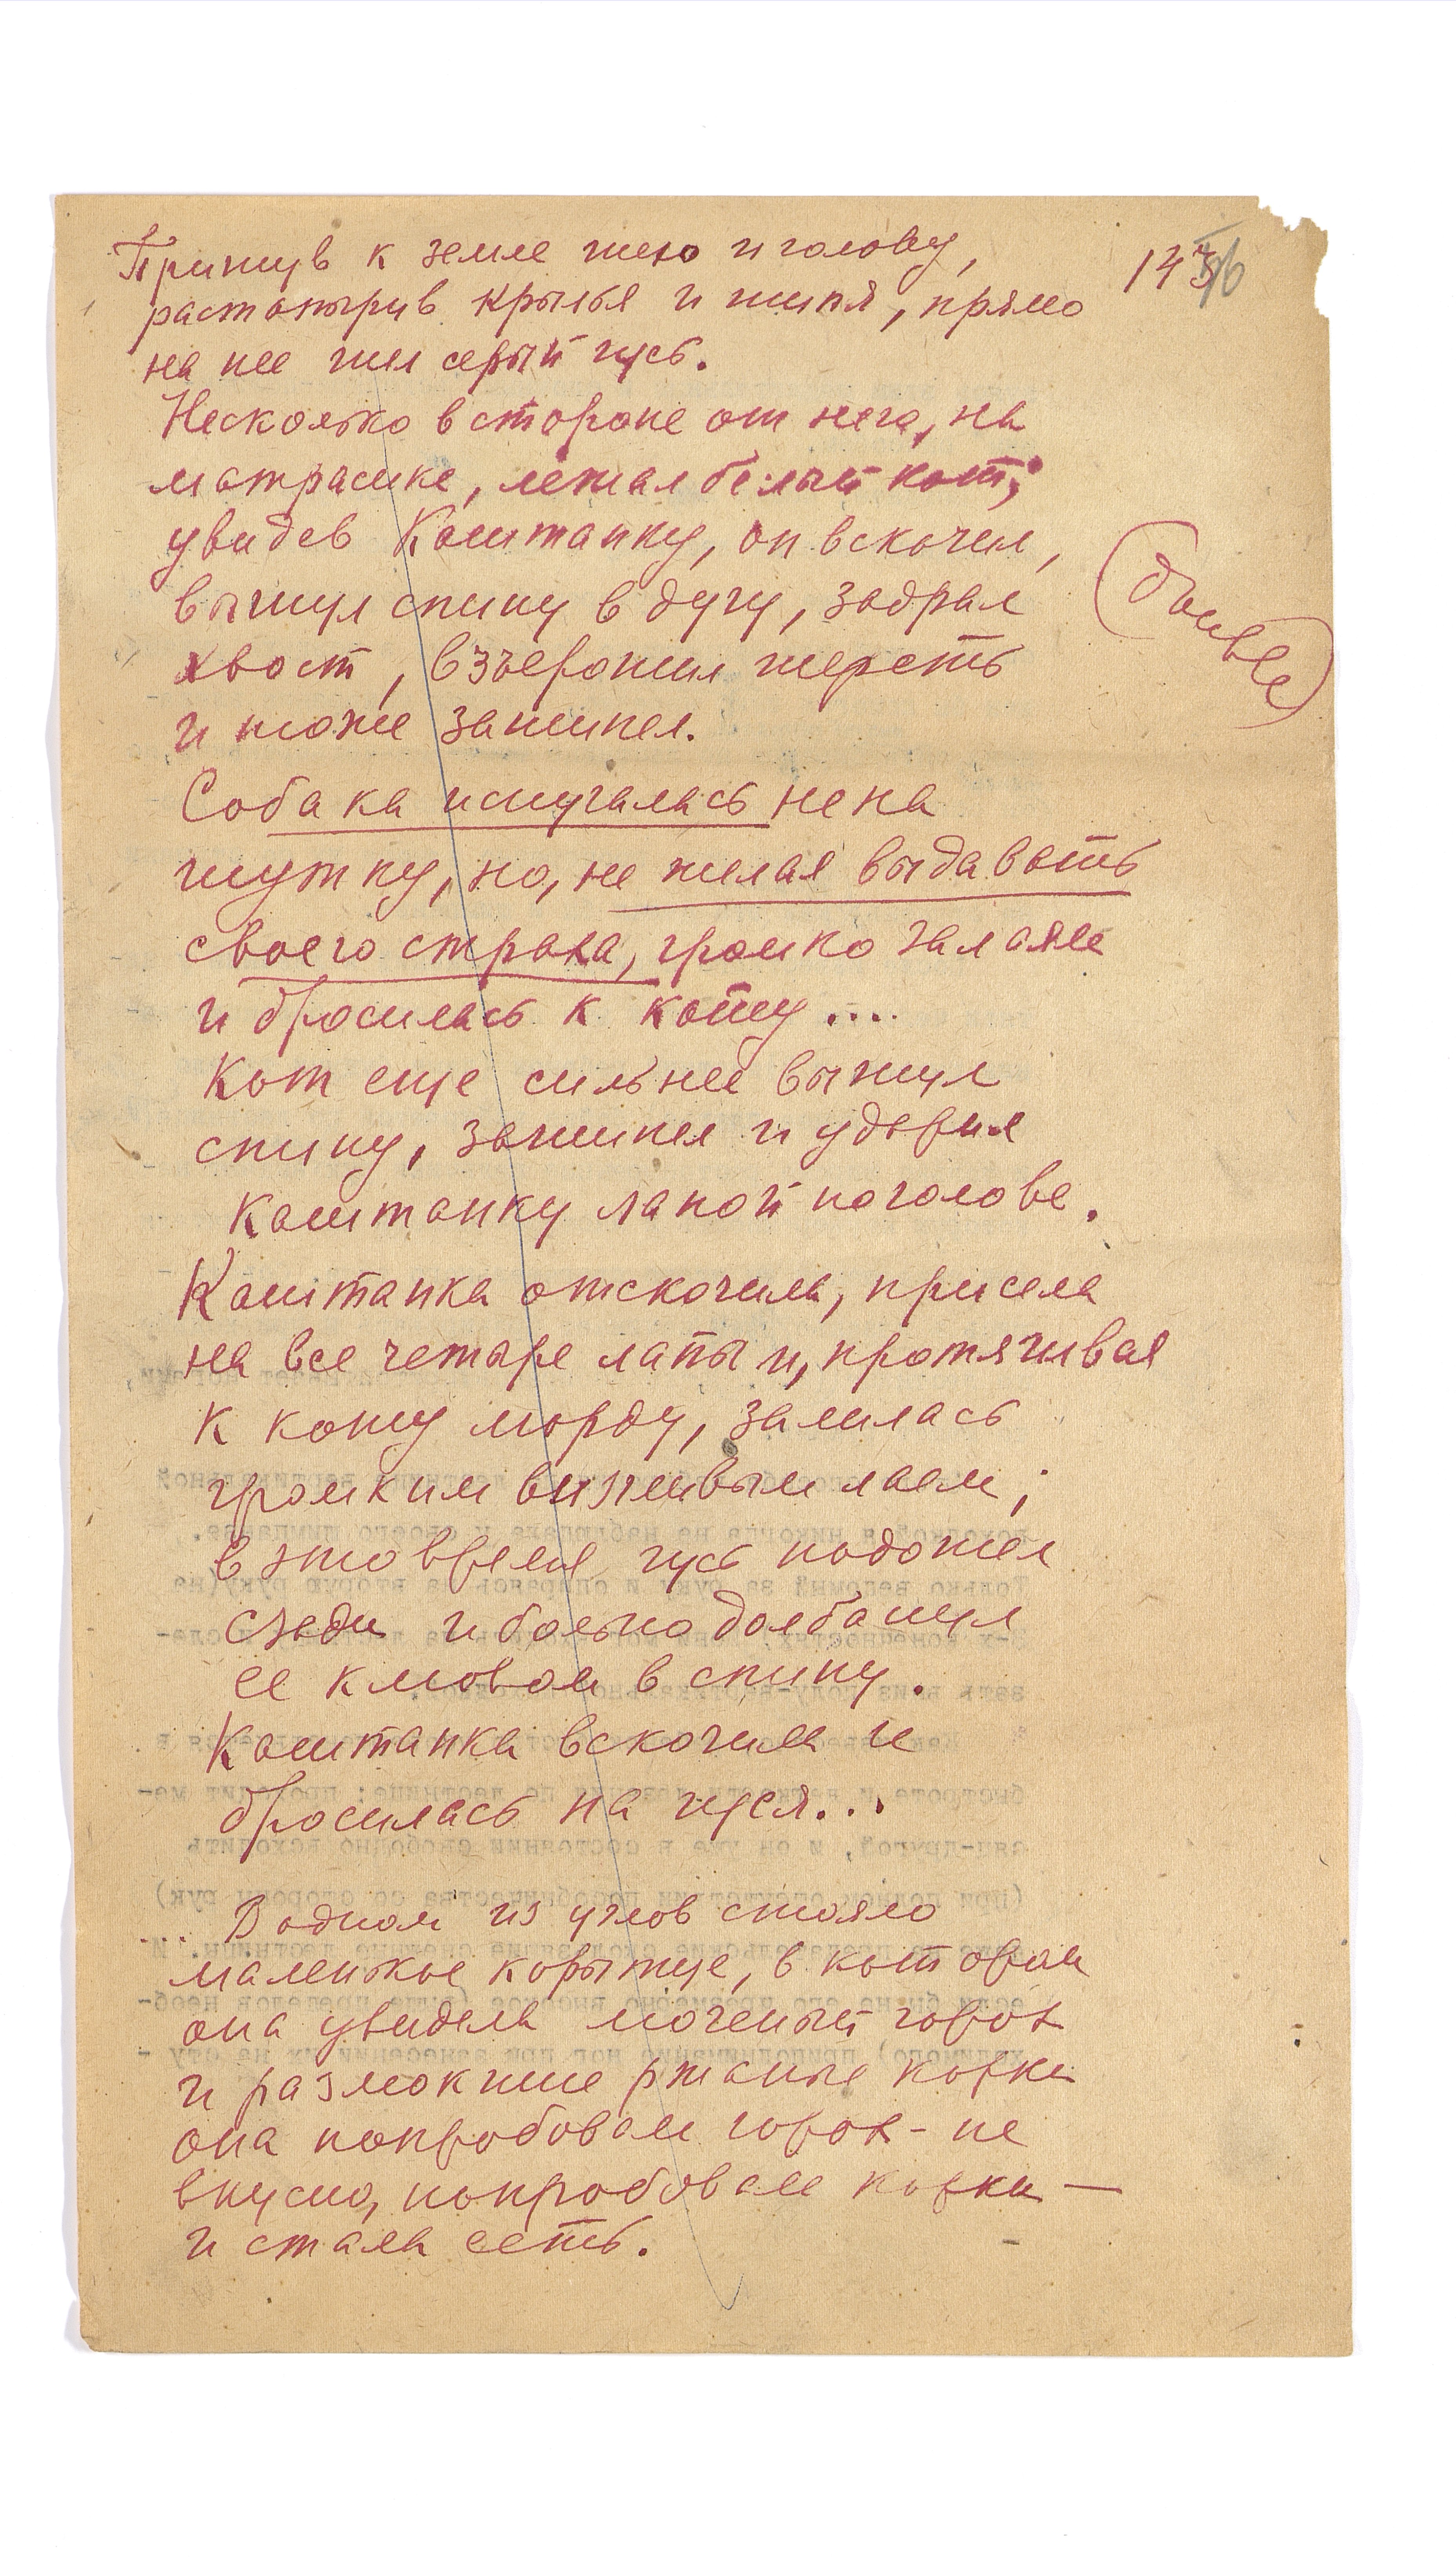 Пригнув к земле шею и голову,
растопырив крылья и шипя, прямо
на нее шел серый гусь.
Несколько в стороне от него, на
матрасике, лежал белый кот;
увидев Каштанку, он вскочил,
выгнул спину в дугу, задрал
хвост, взъерошил шерсть
и тоже зашипел.
Собака испугалась не на
шутку, но, не желая выдавать
своего страха, громко залаяла
и бросилась к коту....
Кот еще сильнее выгнул
спину, зашипел и ударил
Каштанку лапой по голове.
Каштанка отскочила, присела
на все четыре лапы и, протягивая
к коту морду, залилась
громким визгливым лаем;
в это время гусь подошел
сзади и больно долбанул
ее клювом в спину.
Каштанка вскочила и
бросилась на гуся...
... В одном из углов стояло
маленькое корытце, в котором
она увидела моченый горох
и размокшие ржаные корки
она попробовала горох - не
вкусно, попробовала корки —
и стала есть.